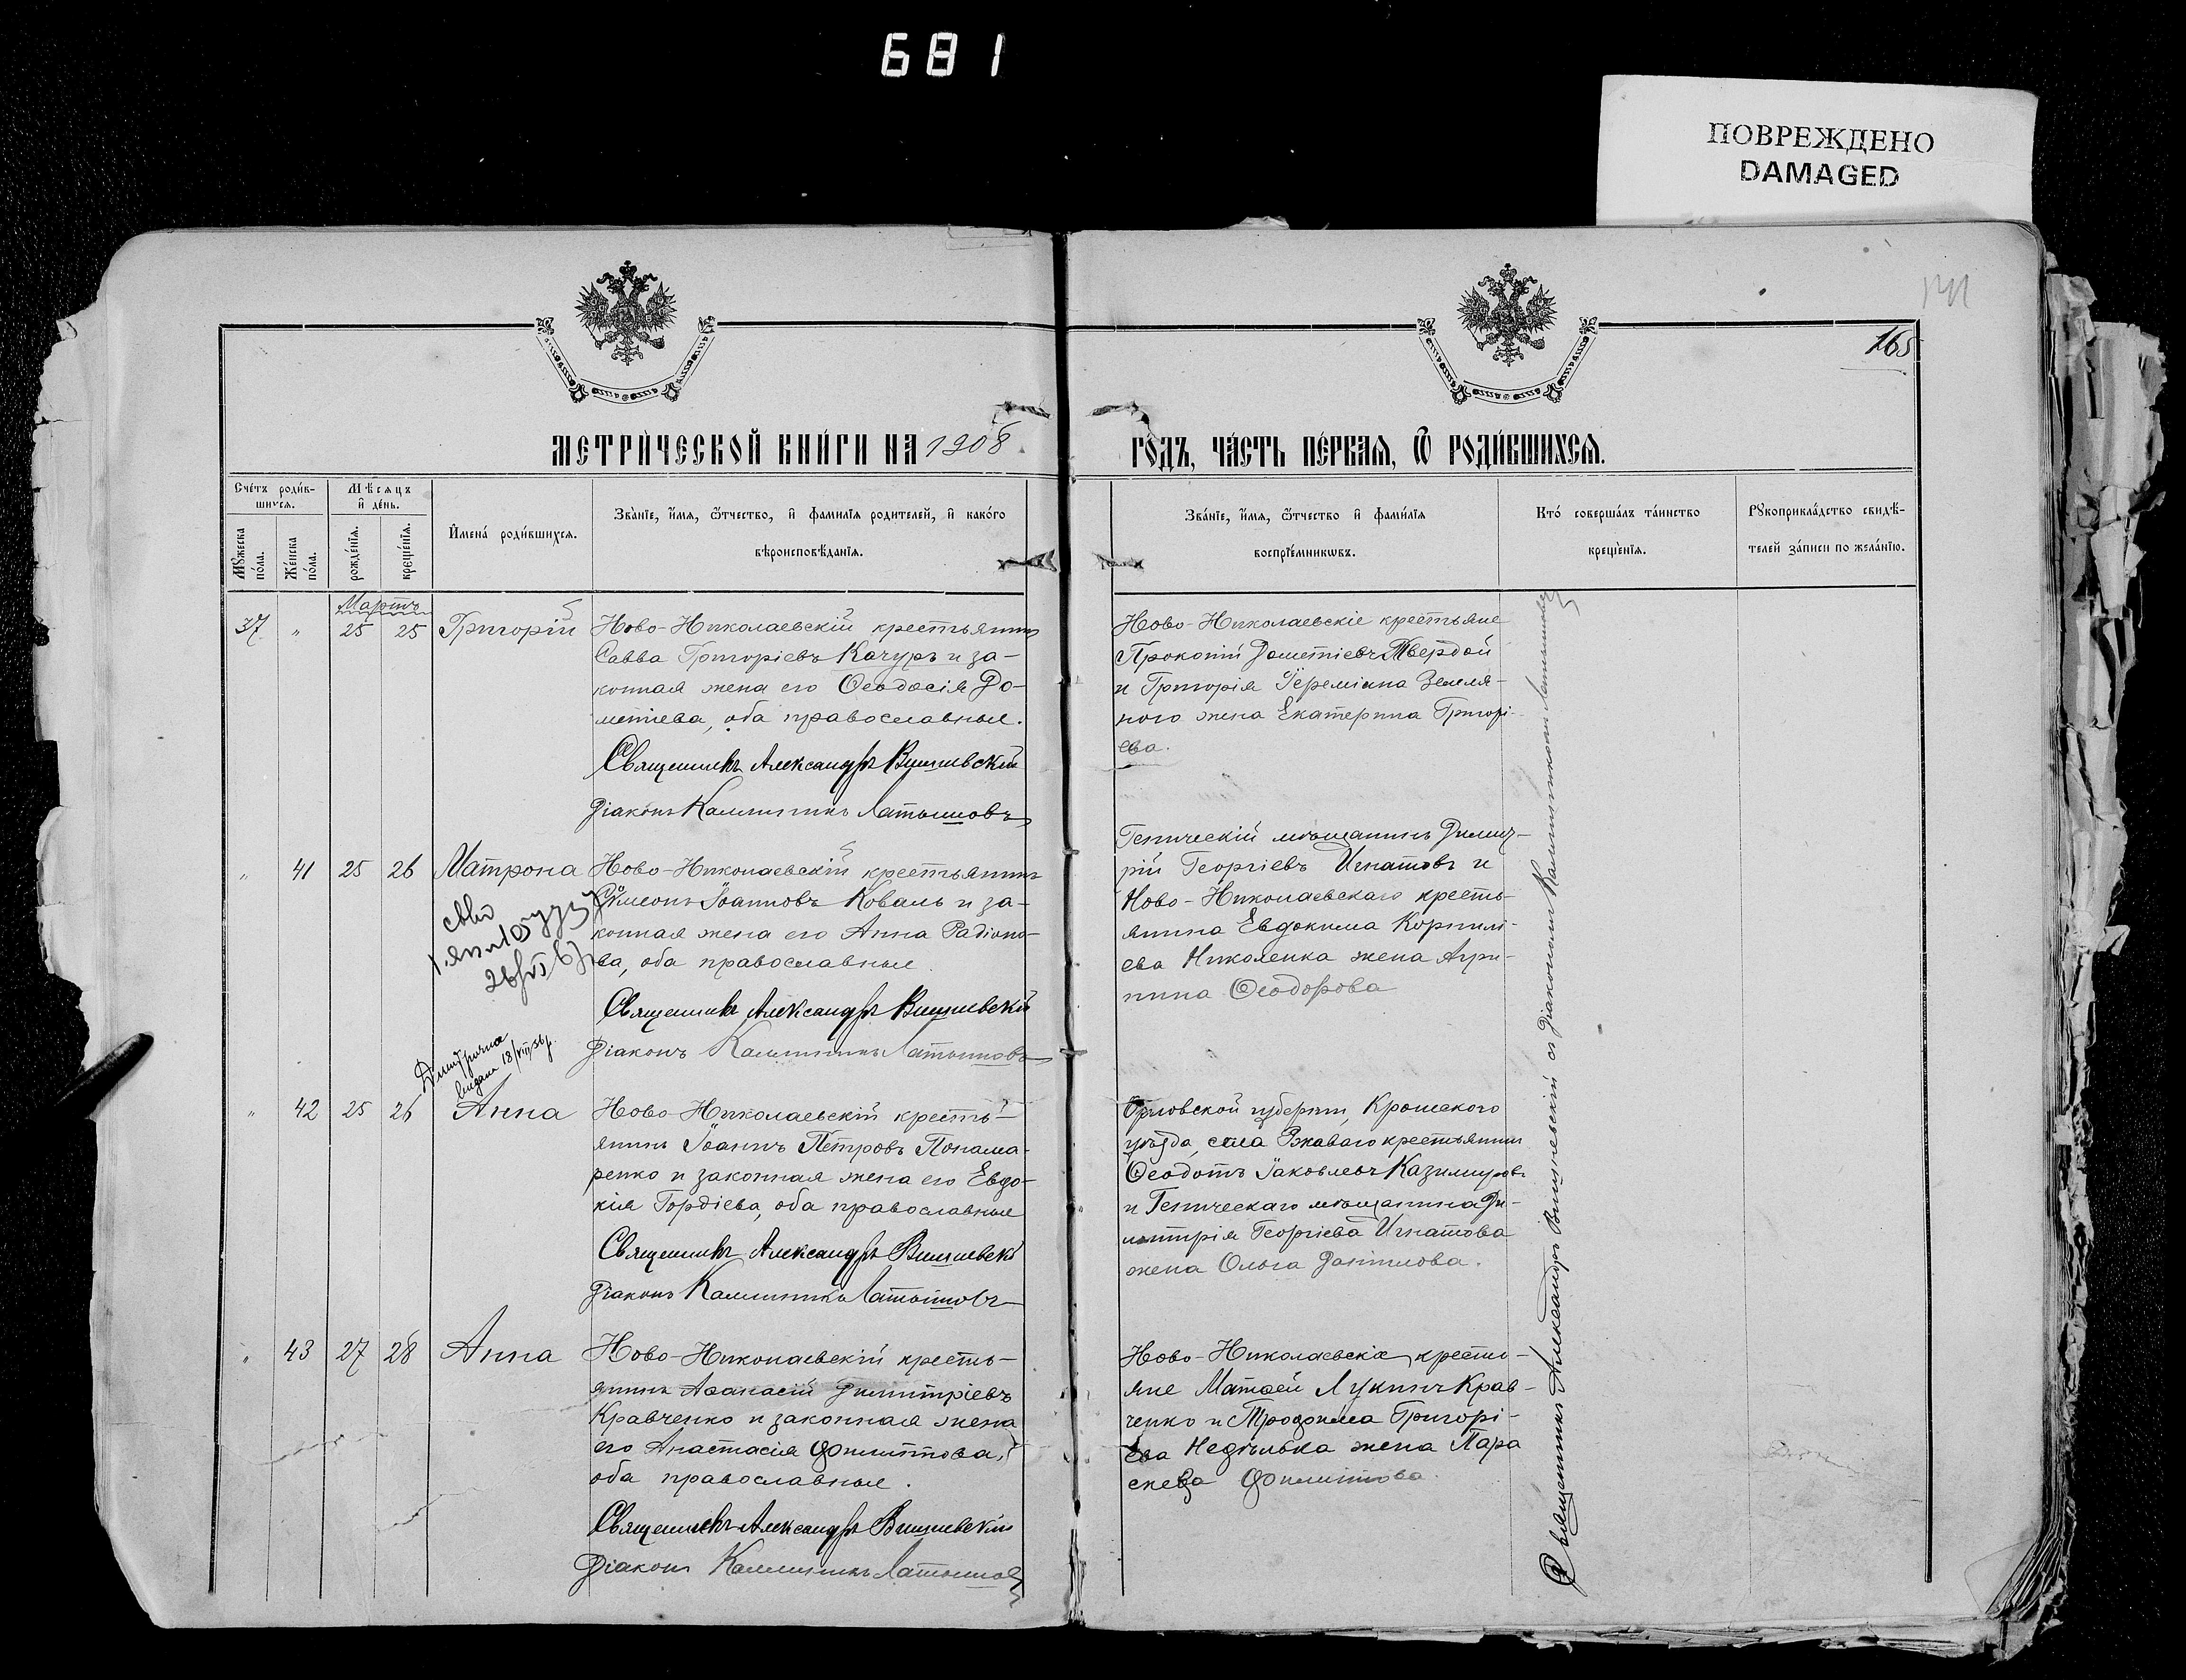 681
ПОВРЕЖДЕНО
DAMAGED
165
МЕТРИ́ЧЕСКОЙ КНИ́ГИ НА 1908
ГО́ДЪ, ЧА́СТЬ ПЕ́РВАЯ, Ѿ РОДИ́ВШИХСЯ.
Сче́тъ роди́в-
шихся.
Мѣсяцъ
и҆ де́нь.
Мꙋ́жеска по́ла.
Же́нска по́ла.
рожде́нїя.
креще́нїя.
И҆мена̀ роди́вшихся.
Зва́нїе, и҆́мя, ѻ҆́тчество, и҆ фами́лїя родителей, и҆ како́го
вѣроисповѣ́данїя.
Зва́нїе, и҆́мя, ѻ҆́тчество и҆ фами́лїя
воспрїе́мникѡвъ.
Кто̀ соверша́лъ та́инство
креще́нїя.
Рꙋкоприкла́дство свидѣ́-
телей за́писи по жела́нїю.
Мартъ
37 " 25 25 Григорій
Ново-Николаевскій крестьянинъ
Савва Григоріевъ Качуръ и за-
конная жена его Ѳеодосія До-
метіева, оба православные.
Священникъ Александръ Вишневскій
Діаконъ Каллиникъ Латышовъ
Ново-Николаевскіе крестьяне
Прокопій Дометіевъ Твердой
и Григорія Іереміина Земля-
ного жена Екатерина Григорі-
ева.
" 41 25 26 Матрона
Ново-Николаевскій крестьянинъ
Сѵмеонъ Іоанновъ Коваль и за-
конная жена его Анна Радіоно-
ва, оба православные.
Священникъ Александръ Вишневскій
Діаконъ Каллиникъ Латышовъ
Геническій мѣщанинъ Димит-
рій Георгіевъ Игнатовъ и
Ново-Николаевскаго кресть-
янина Евдокима Корнилі-
ева Николенка жена Агри-
пина Ѳеодорова
выдана 18/VIII 56 г.
" 42 25 26 Анна
Ново-Николаевскій кресть-
янинъ Іоаннъ Петровъ Понама-
ренко и законная жена его Евдо-
кія Гордіева, оба православные
Священникъ Александръ Вишневскі
Діаконъ Каллиникъ Латышовъ
Орловской губерніи, Кромскаго
уѣзда, села Ржаваго крестьянинъ
Ѳеодотъ Іаковлевъ Казимировъ
и Геническаго мѣщанина Ди-
митрія Георгіева Игнатова
жена Ольга Даніилова.
" 43 27 28 Анна
Ново-Николаевскій кресть-
янинъ Аѳанасій Димитріевъ
Кравченко и законная жена
его Анастасія Филиппова,
оба православные.
Священникъ Александръ Вишневскій
Діаконъ Каллиникъ Латышовъ
Ново-Николаевскіе кресть-
яне Матѳей Лукинъ Крав-
ченко и Трофима Григорі-
ева Недѣлька жена Пара
скева Филиппова.
Священникъ Александръ Вишневскій съ діакономъ Каллиникомъ Латышовымъ